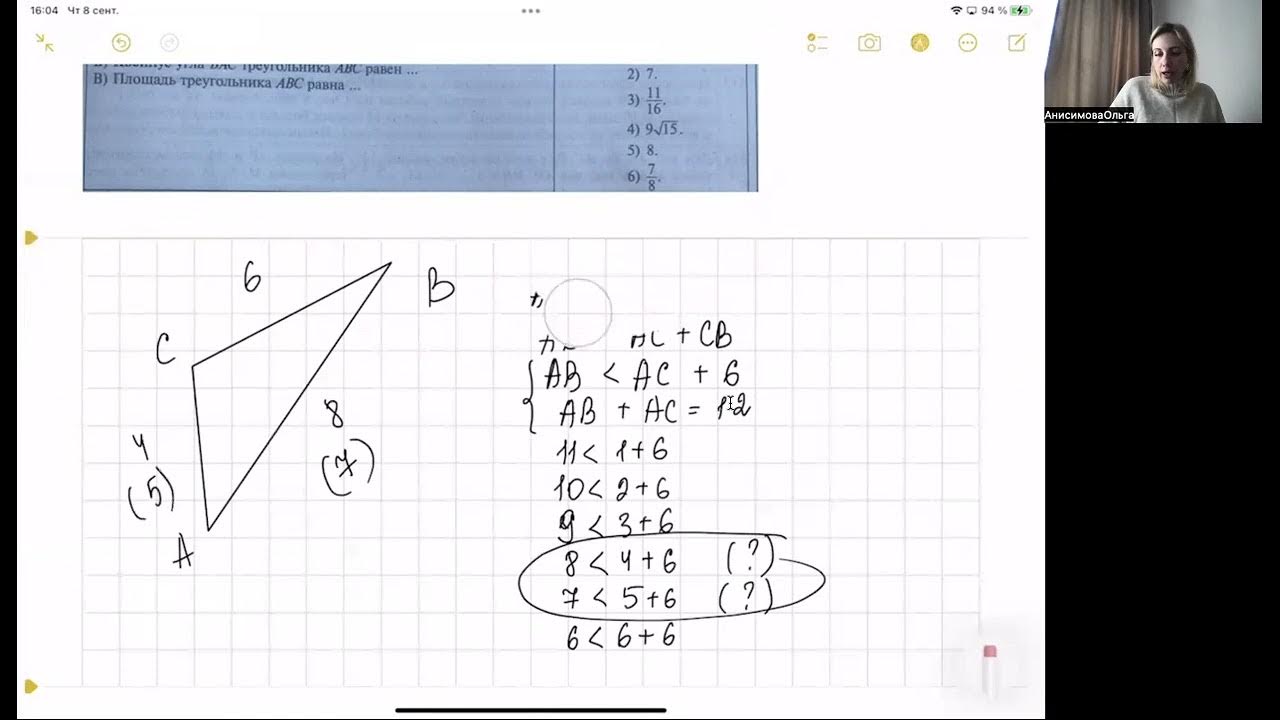 16:04 Чт 8 сент.
94 %
АнисимоваОльга
угла BAC треугольника ABC равен ...
В) Площадь треугольника ABC равна ...
2) 7.
3) 11/16.
4) 9√15.
5) 8.
6) 7/8.
6
B
C
8
(7)
4
(5)
A
+ CB
AB < AC + 6
AB + AC = 12
11 < 1+6
10 < 2+6
9 < 3+6
8 < 4+6 (?)
7 < 5+6 (?)
6 < 6+6